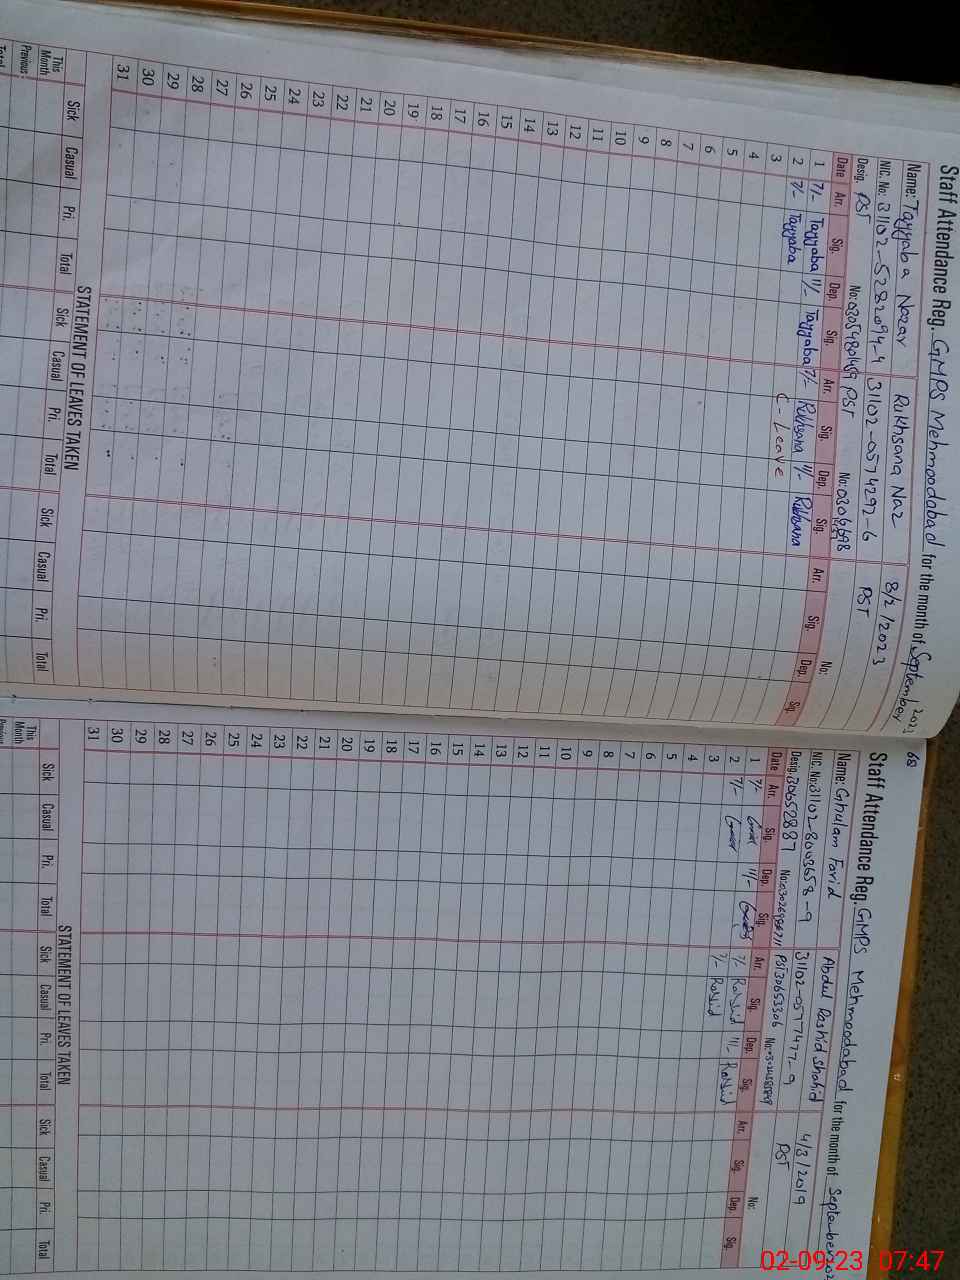 Staff Attendance Reg. GMPS Mehmoodabad for the month of September 2023
Name: Tayyaba Nazar Rukhsana Naz 8/2/2023
NIC. No: 31102-5282094-4 31102-0574292-6 PST
Desig. PST No: PST No: No:
Date Arr. Sig. Dep. Sig. Arr. Sig. Dep. Sig. Arr. Sig. Dep. Sig.
1 7/- Tayyaba 11/- Tayyaba 7/- Rukhsana 11/- Rukhsana
2 7/- Tayyaba C-Leave
3
4
5
6
7
8
9
10
11
12
13
14
15
16
17
18
19
20
21
22
23
24
25
26
27
28
29
30
31
STATEMENT OF LEAVES TAKEN
Sick Casual Pri. Total Sick Casual Pri. Total Sick Casual Pri. Total
This Month
Previous
Total
68
Staff Attendance Reg. GMPS Mehmoodabad for the month of September
Name: Ghulam Farid Abdul Rashid Shahid 4/3/2019
NIC. No: 31102-8003658-9 31102-0577477-9 PST
Desig. 30652887 No: PST 30653306 No: No:
Date Arr. Sig. Dep. Sig. Arr. Sig. Dep. Sig. Arr. Sig. Dep. Sig.
1 7/- 11/- 7/- Rashid 11/- Rashid
2 7/- 7/- Rashid
3
4
5
6
7
8
9
10
11
12
13
14
15
16
17
18
19
20
21
22
23
24
25
26
27
28
29
30
31
STATEMENT OF LEAVES TAKEN
Sick Casual Pri. Total Sick Casual Pri. Total Sick Casual Pri. Total
This Month
Previous
02-09-23 07:47